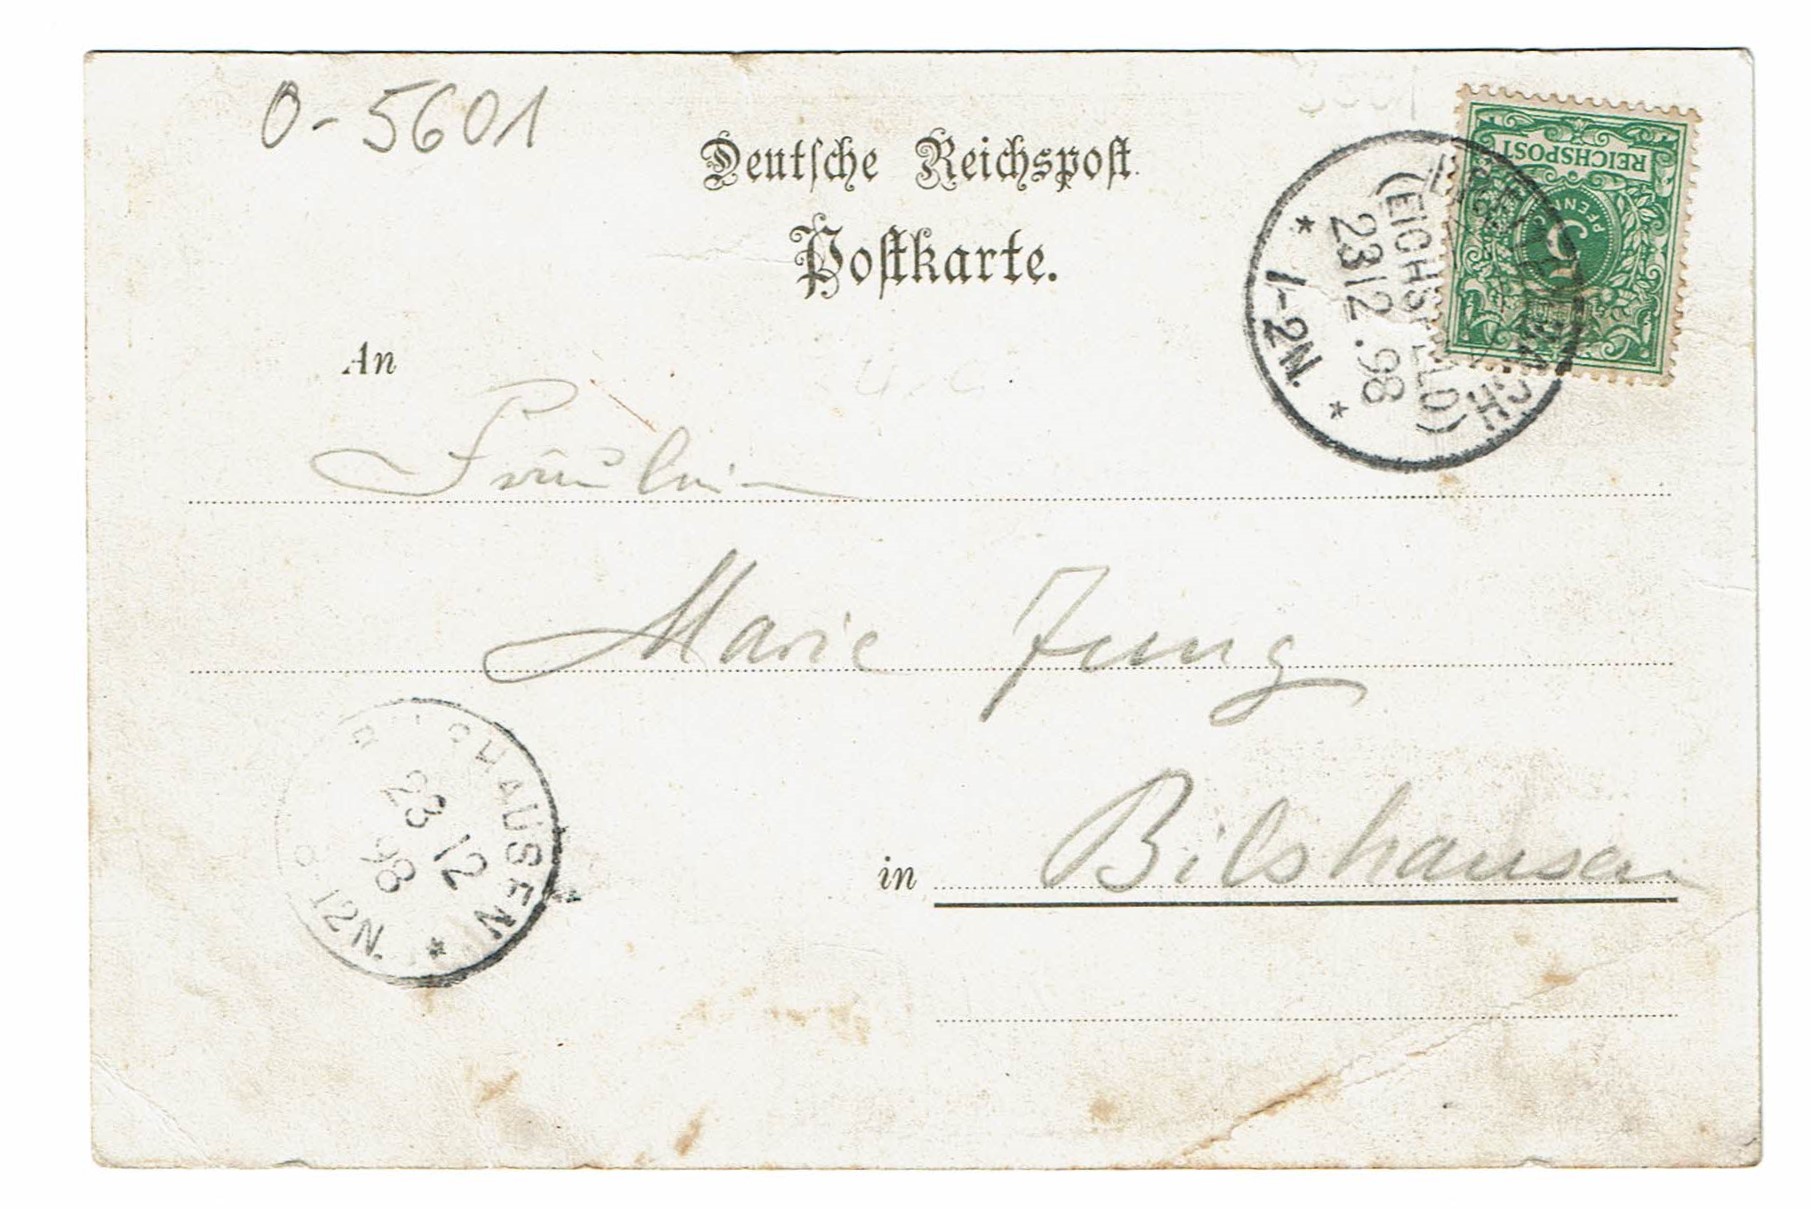 0-5601
Deutsche Reichspost
Postkarte.
REICHSPOST
5
PFENNIG
(EICHSFELD)
23/12.98
1-2N.
An
Fräulein
Marie Jung
in Bilshausen
HAUSEN
23 12
98
12N.